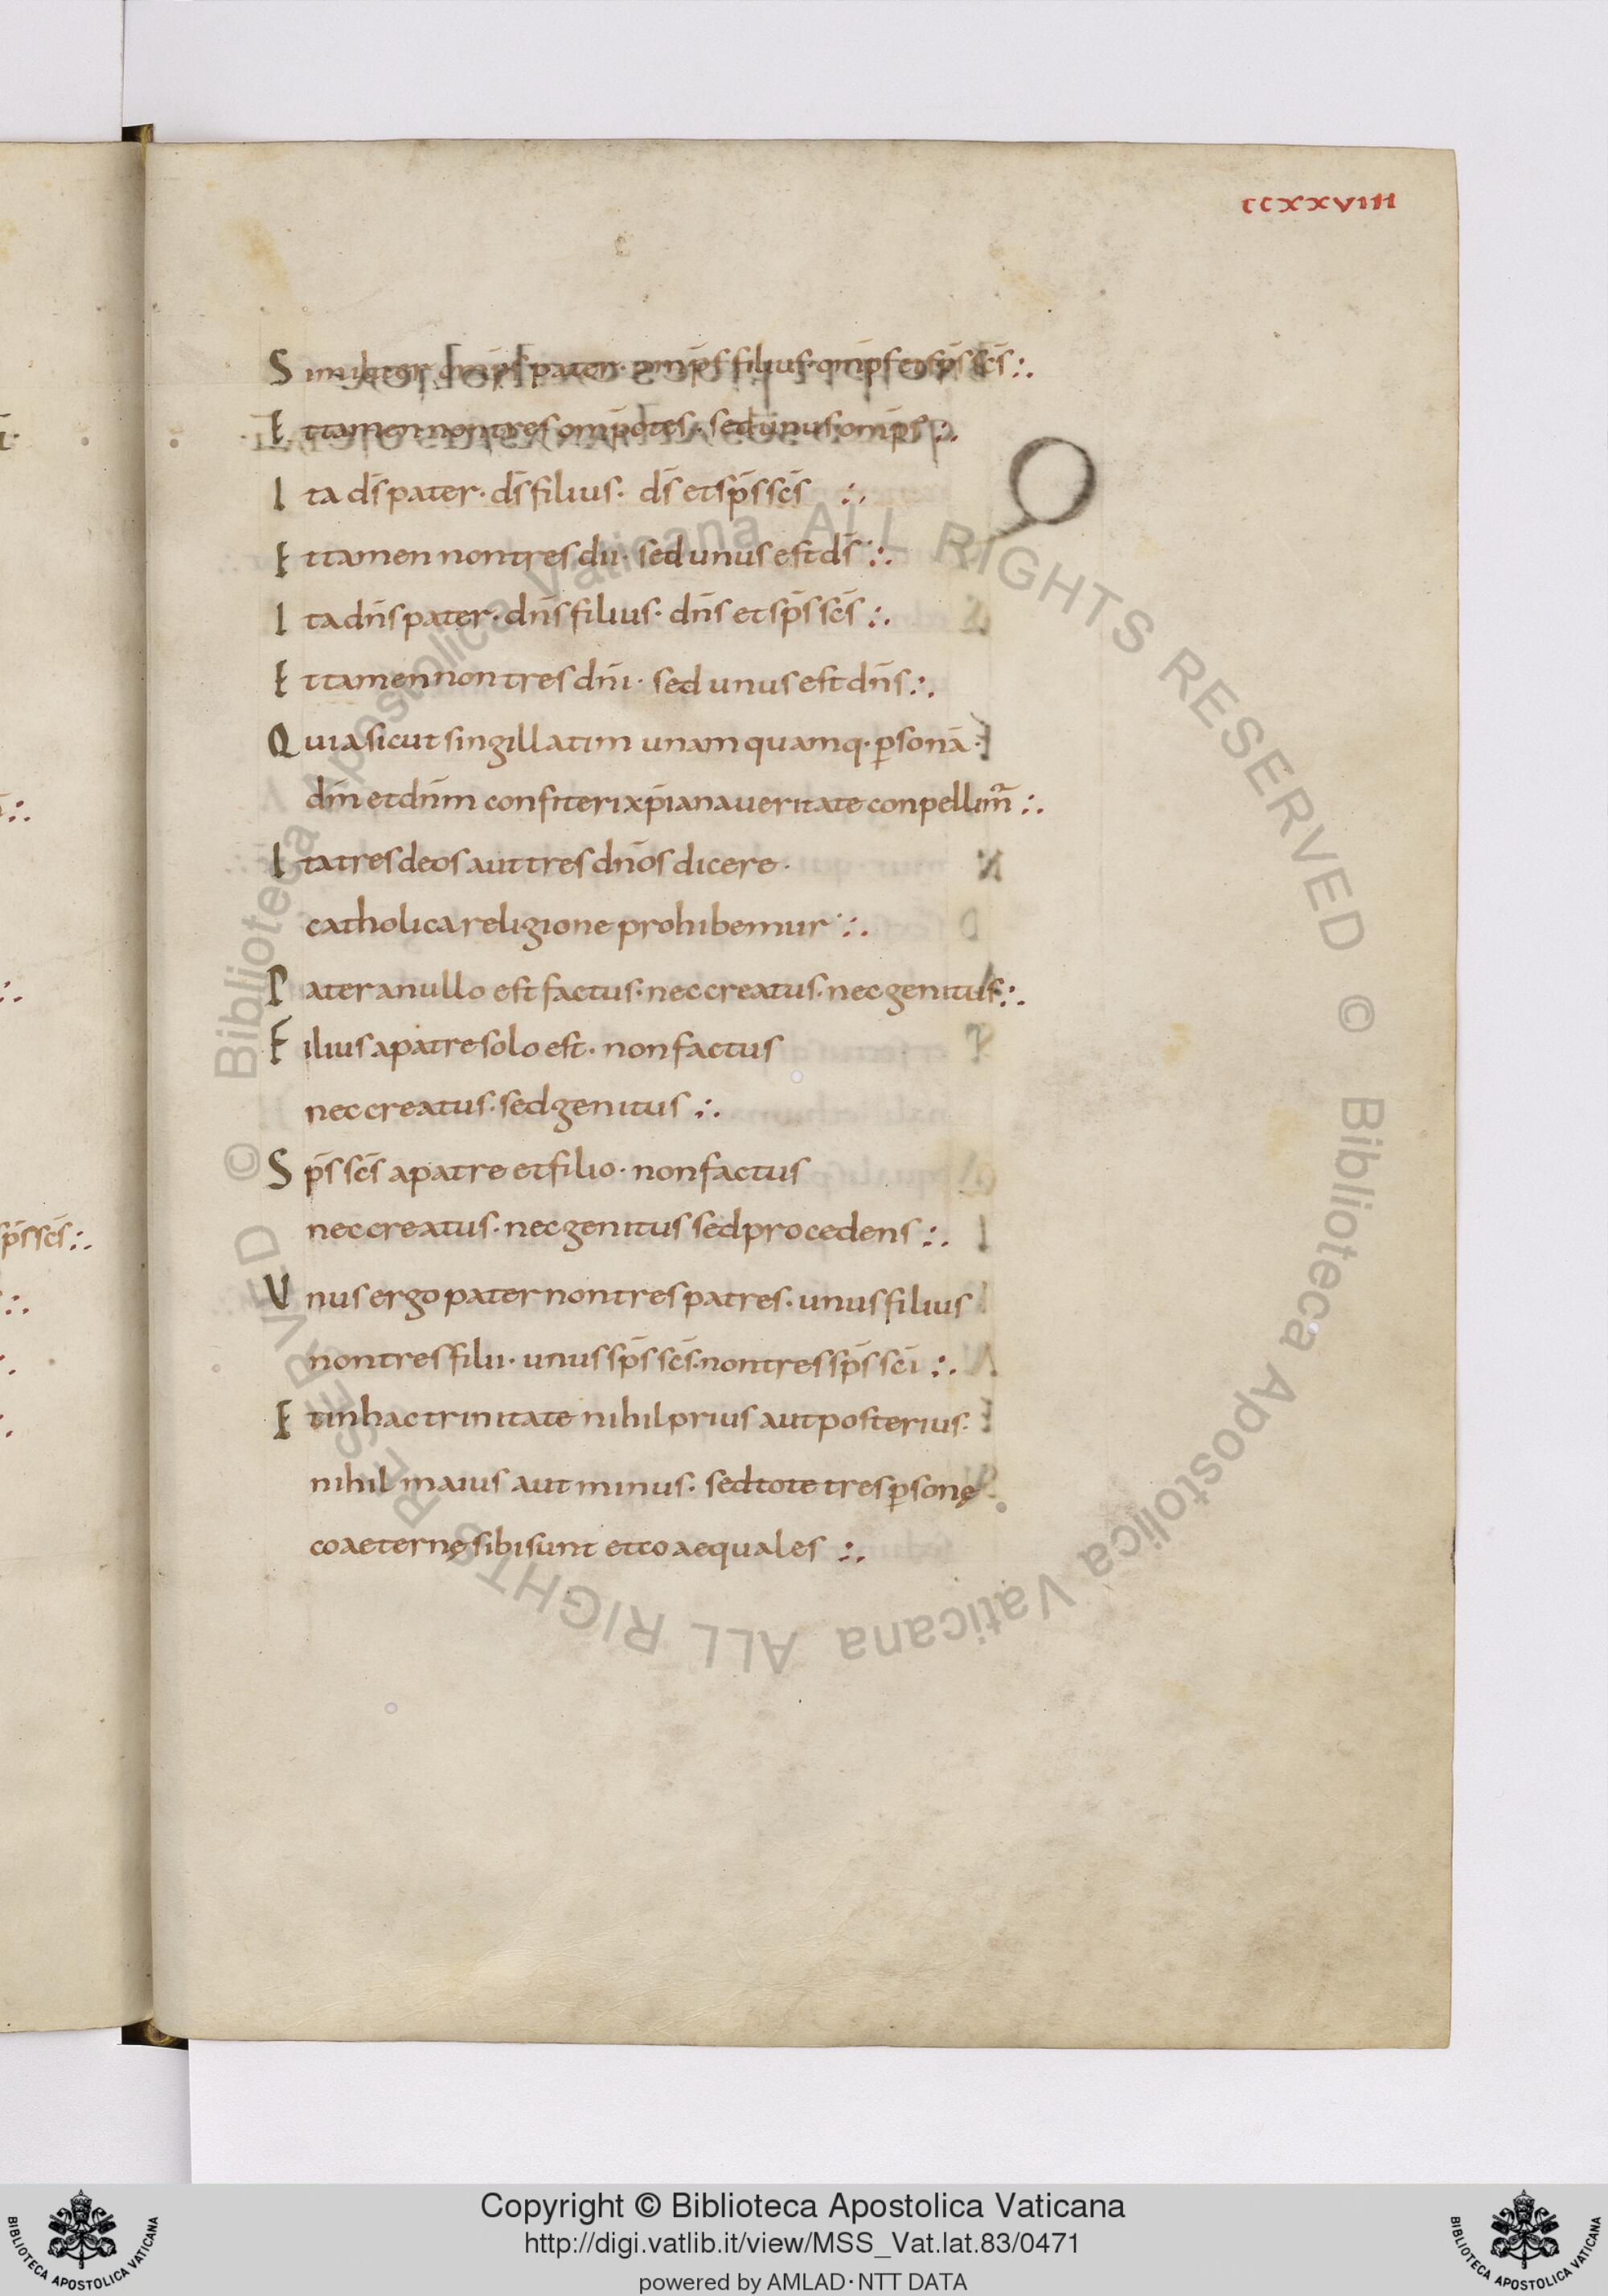 CCXXVIII
Similiter omīps pater · omīps filius · omīps et sp̄s sc̄s :.
Et tamen non tres omīpotes · sed unus omīps :.
Ita d̄s pater · d̄s filius · d̄s et sp̄s sc̄s :.
Et tamen non tres dii · sed unus est d̄s :.
Ita dn̄s pater · dn̄s filius · dn̄s et sp̄s sc̄s :.
Et tamen non tres dn̄i · sed unus est dn̄s :.
Quia sicut singillatim unam quamq · p̲sonā ·
dm̄ et dn̄m confiteri xp̄iana ueritate conpellim̄ :.
Ita tres deos aut tres dn̄os dicere ·
catholica religione prohibemur :.
Pater a nullo est factus · nec creatus · nec genitus :.
Filius a patre solo est · non factus
nec creatus · sed genitus :.
Sp̄s sc̄s a patre et filio · non factus
nec creatus · nec genitus sed procedens :.
Unus ergo pater non tres patres · unus filius
non tres filii · unus sp̄s sc̄s · non tres sp̄s sc̄i :.
Et in hac trinitate nihil prius aut posterius ·
nihil maius aut minus · sed tote tres p̲sonę
coaeternę sibi sunt et coaequales :.
© Biblioteca Apostolica Vaticana ALL RIGHTS RESERVED © Biblioteca Apostolica Vaticana ALL RIGHTS RESERVED
Copyright © Biblioteca Apostolica Vaticana
http://digi.vatlib.it/view/MSS_Vat.lat.83/0471
powered by AMLAD·NTT DATA
BIBLIOTECA APOSTOLICA VATICANA
BIBLIOTECA APOSTOLICA VATICANA